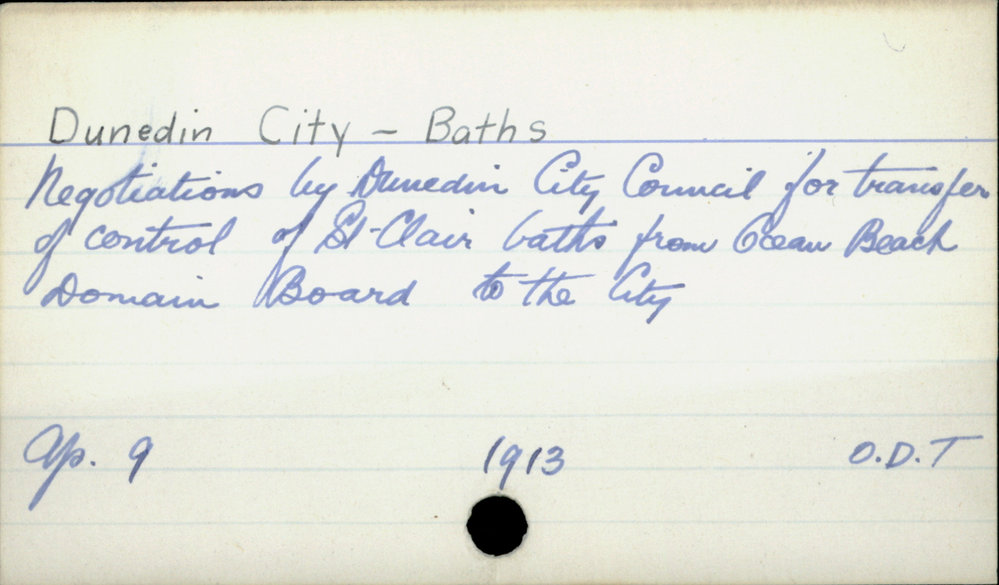 Dunedin City - Baths
Negotiations by Dunedin City Council for transfer
of control of St-Clair baths from Ocean Beach
Domain Board to the City
Ap. 9 1913 O.D.T